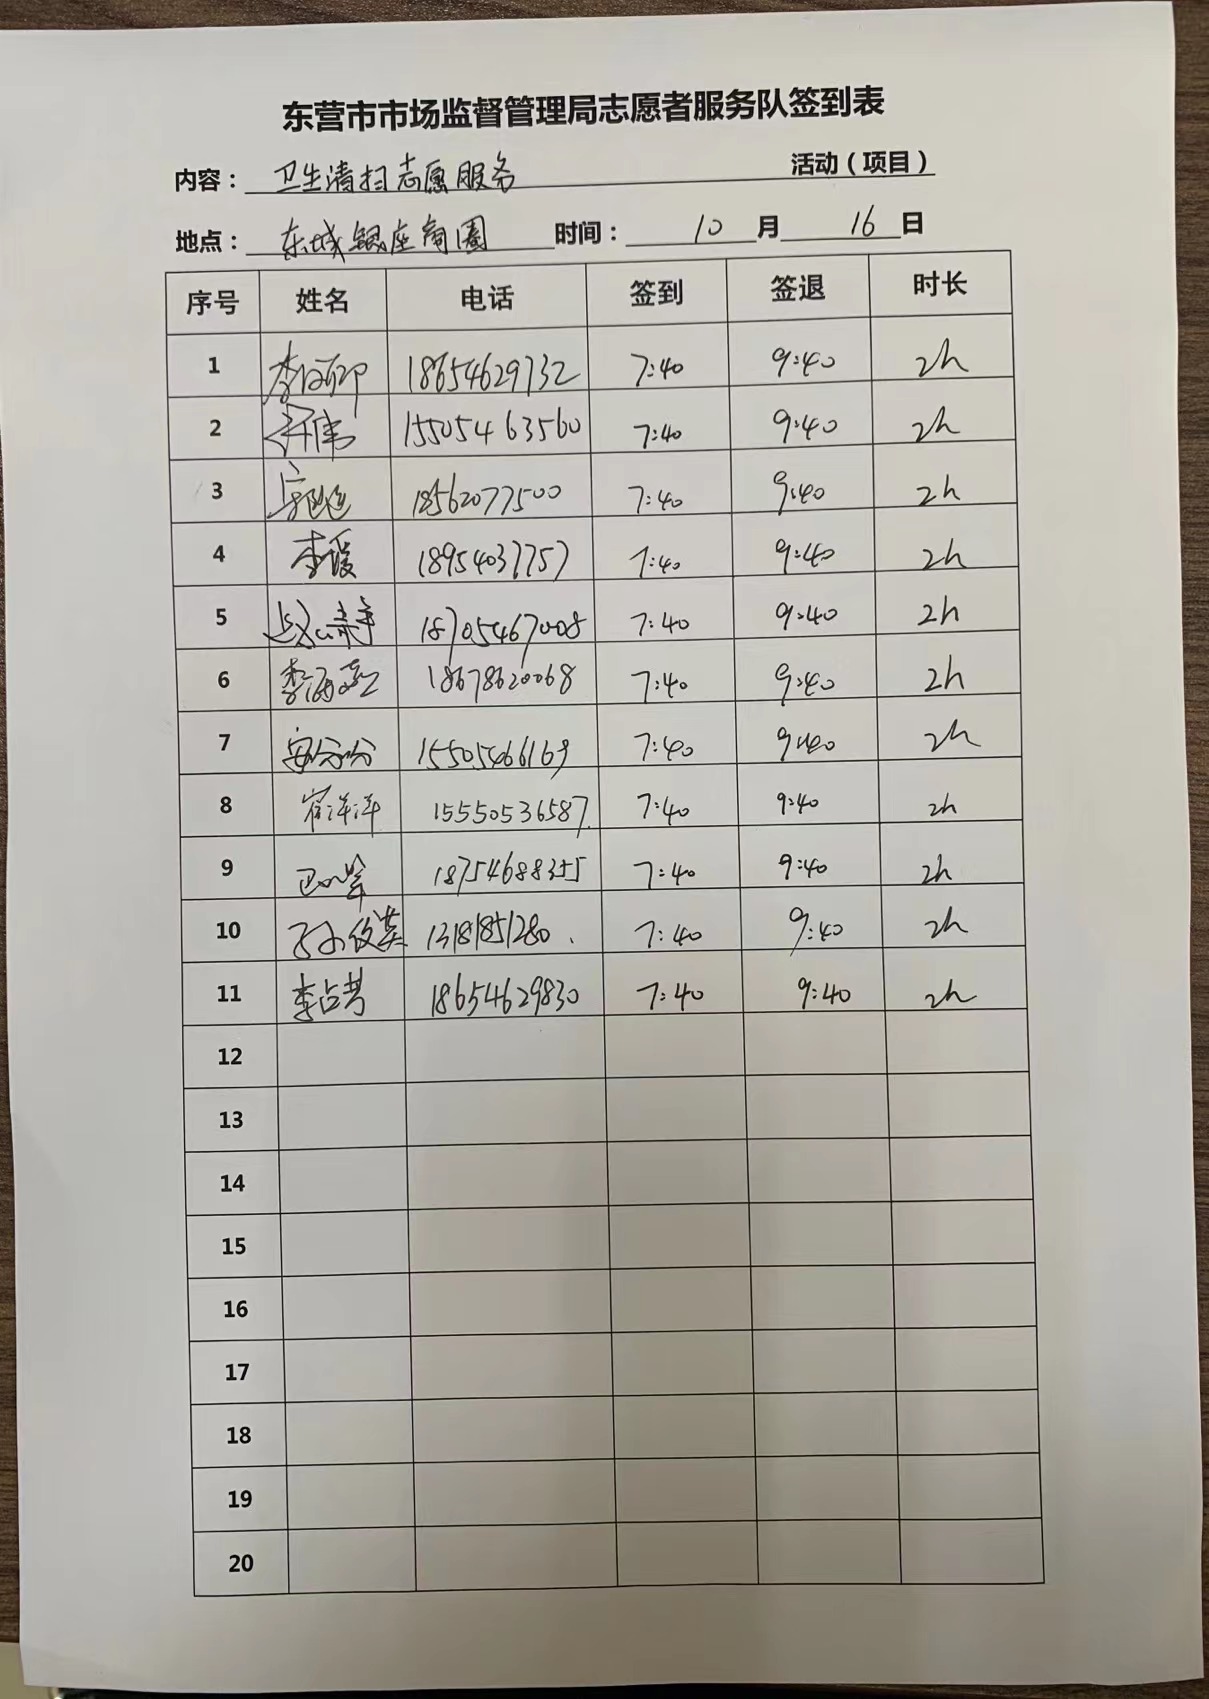 东营市市场监督管理局志愿者服务队签到表
内容： 卫生清扫志愿服务 活动（项目）
地点： 东城银座商圈 时间： 10 月 16 日
序号 姓名 电话 签到 签退 时长
1 18654629732 7:40 9:40 2h
2 15505463560 7:40 9:40 2h
3 18562077500 7:40 9:40 2h
4 李媛 18954037757 7:40 9:40 2h
5 18705467008 7:40 9:40 2h
6 李海燕 18678620068 7:40 9:40 2h
7 安玢玢 15505466169 7:40 9:40 2h
8 崔洋洋 15550536587 7:40 9:40 2h
9 18754688355 7:40 9:40 2h
10 孙俊英 13181851280 7:40 9:40 2h
11 李占芳 18654629830 7:40 9:40 2h
12
13
14
15
16
17
18
19
20